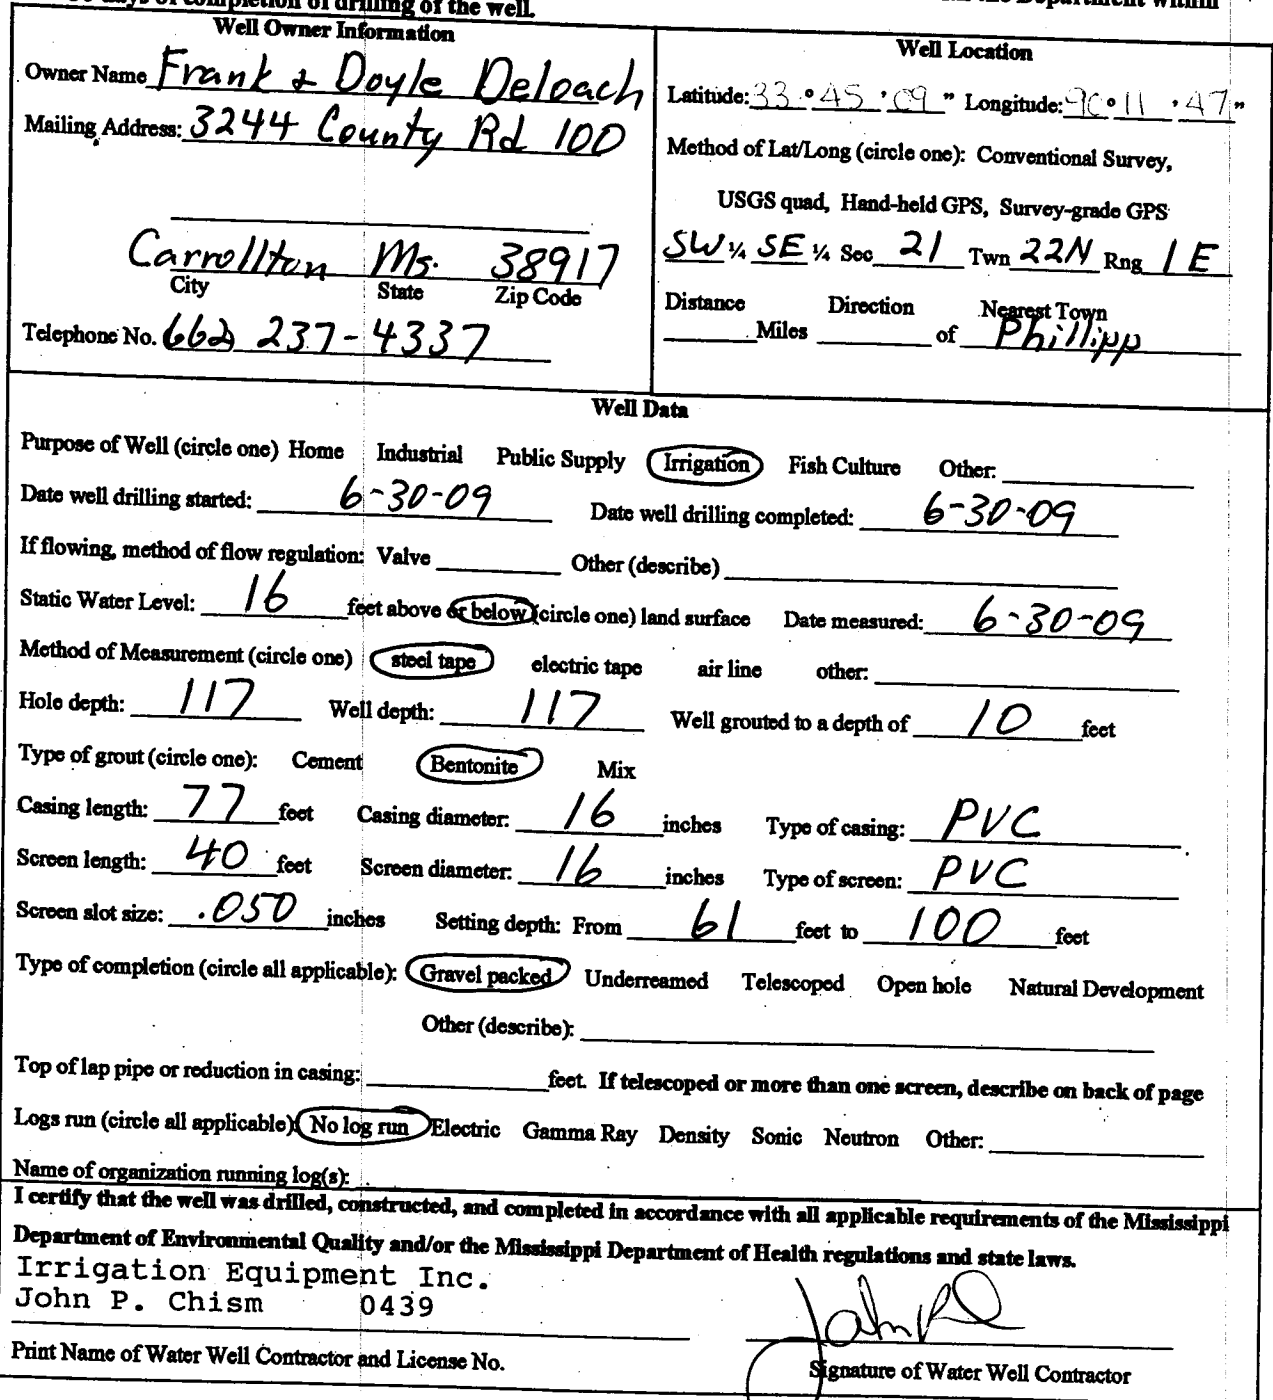 days of completion of drilling of the well.
the Department within
Well Owner Information
Owner Name Frank & Doyle Deloach
Mailing Address: 3244 County Rd 100
Carrollton Ms. 38917
City State Zip Code
Telephone No. 662 237-4337
Well Location
Latitude: 33 ° 45 ' 09 " Longitude: 90 ° 11 ' 47 "
Method of Lat/Long (circle one): Conventional Survey,
USGS quad, Hand-held GPS, Survey-grade GPS
SW ¼ SE ¼ Sec 21 Twn 22N Rng 1E
Distance Direction Nearest Town
Miles of Phillipp
Well Data
Purpose of Well (circle one) Home Industrial Public Supply Irrigation Fish Culture Other:
Date well drilling started: 6-30-09 Date well drilling completed: 6-30-09
If flowing, method of flow regulation: Valve Other (describe)
Static Water Level: 16 feet above or below (circle one) land surface Date measured: 6-30-09
Method of Measurement (circle one) steel tape electric tape air line other:
Hole depth: 117 Well depth: 117 Well grouted to a depth of 10 feet
Type of grout (circle one): Cement Bentonite Mix
Casing length: 77 feet Casing diameter: 16 inches Type of casing: PVC
Screen length: 40 feet Screen diameter: 16 inches Type of screen: PVC
Screen slot size: .050 inches Setting depth: From 61 feet to 100 feet
Type of completion (circle all applicable): Gravel packed Underreamed Telescoped Open hole Natural Development
Other (describe):
Top of lap pipe or reduction in casing: feet. If telescoped or more than one screen, describe on back of page
Logs run (circle all applicable) No log run Electric Gamma Ray Density Sonic Neutron Other:
Name of organization running log(s):
I certify that the well was drilled, constructed, and completed in accordance with all applicable requirements of the Mississippi
Department of Environmental Quality and/or the Mississippi Department of Health regulations and state laws.
Irrigation Equipment Inc.
John P. Chism 0439
Print Name of Water Well Contractor and License No.
Signature of Water Well Contractor